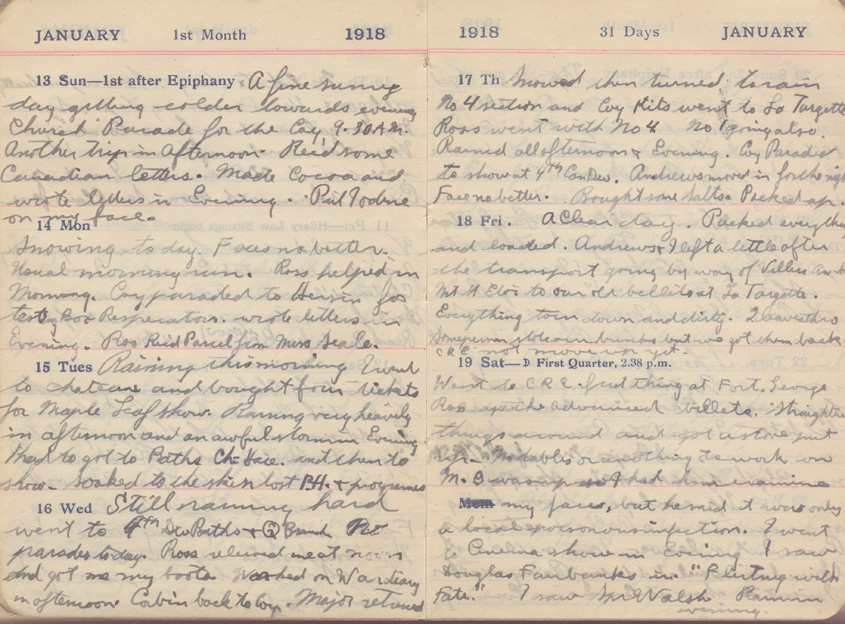 JANUARY 1st Month 1918
13 Sun—1st after Epiphany A fine sunny
day getting colder towards evening
Church Parade for the Coy 9.30 A.M.
Another trip in Afternoon. Rec'd some
Canadian letters. Made Cocoa and
wrote letters in Evening. Put Iodine
on my face.
14 Mon
Snowing to day. Face no better.
Usual morning run. Ross helped in
Morning. Coy paraded to Hersin for
Box Respirators. wrote letters in
Evening. Ross Rec'd Parcel from Miss Seale.
15 Tues Raining this morning I went
to chateau and bought four tickets
for Maple Leaf show. Raining very heavily
in afternoon and an awful storm in Evening
Had to go to Baths and then to
show. Soaked to the skin lost P.H. & programmes
16 Wed Still raining hard
went to 4th Div Baths & Q Branch No
parades today. Ross relieved me at noon
and got me my boots Worked on War diary
in afternoon. back to Coy. Major returned
1918 31 Days JANUARY
17 Th Snowed then turned to rain
No 4 section and Coy Kits went to La Targette
Ross went with No 4. No 1 going also.
Rained all afternoon & Evening. Coy Paraded
to show at 4th Can Div. Andrews moved in for the night
Face no better. Bought some Salts. Packed up.
18 Fri. A Clear day. Packed everything
and loaded. Andrews & I left a little after
the transport going by way of Villers au
Mt St Eloi to our old billets at La Targette.
Everything torn down and dirty.
stole our bunks but we got them back
C.R.E. not move up yet.
19 Sat— First Quarter, 2.38 p.m.
Went to C.R.E. find thing at Fort George
Ross up the advanced billets. Straighten
things around and got a stove put
up. No tables or anything to work on
M.O was up so I had him examine
Mem my face, but he said it was only
a local poisonous infection. I went
to Cinema show in Evening I saw
Douglas Fairbanks in "Flirting with
Fate." I saw Mr Walsh
evening.